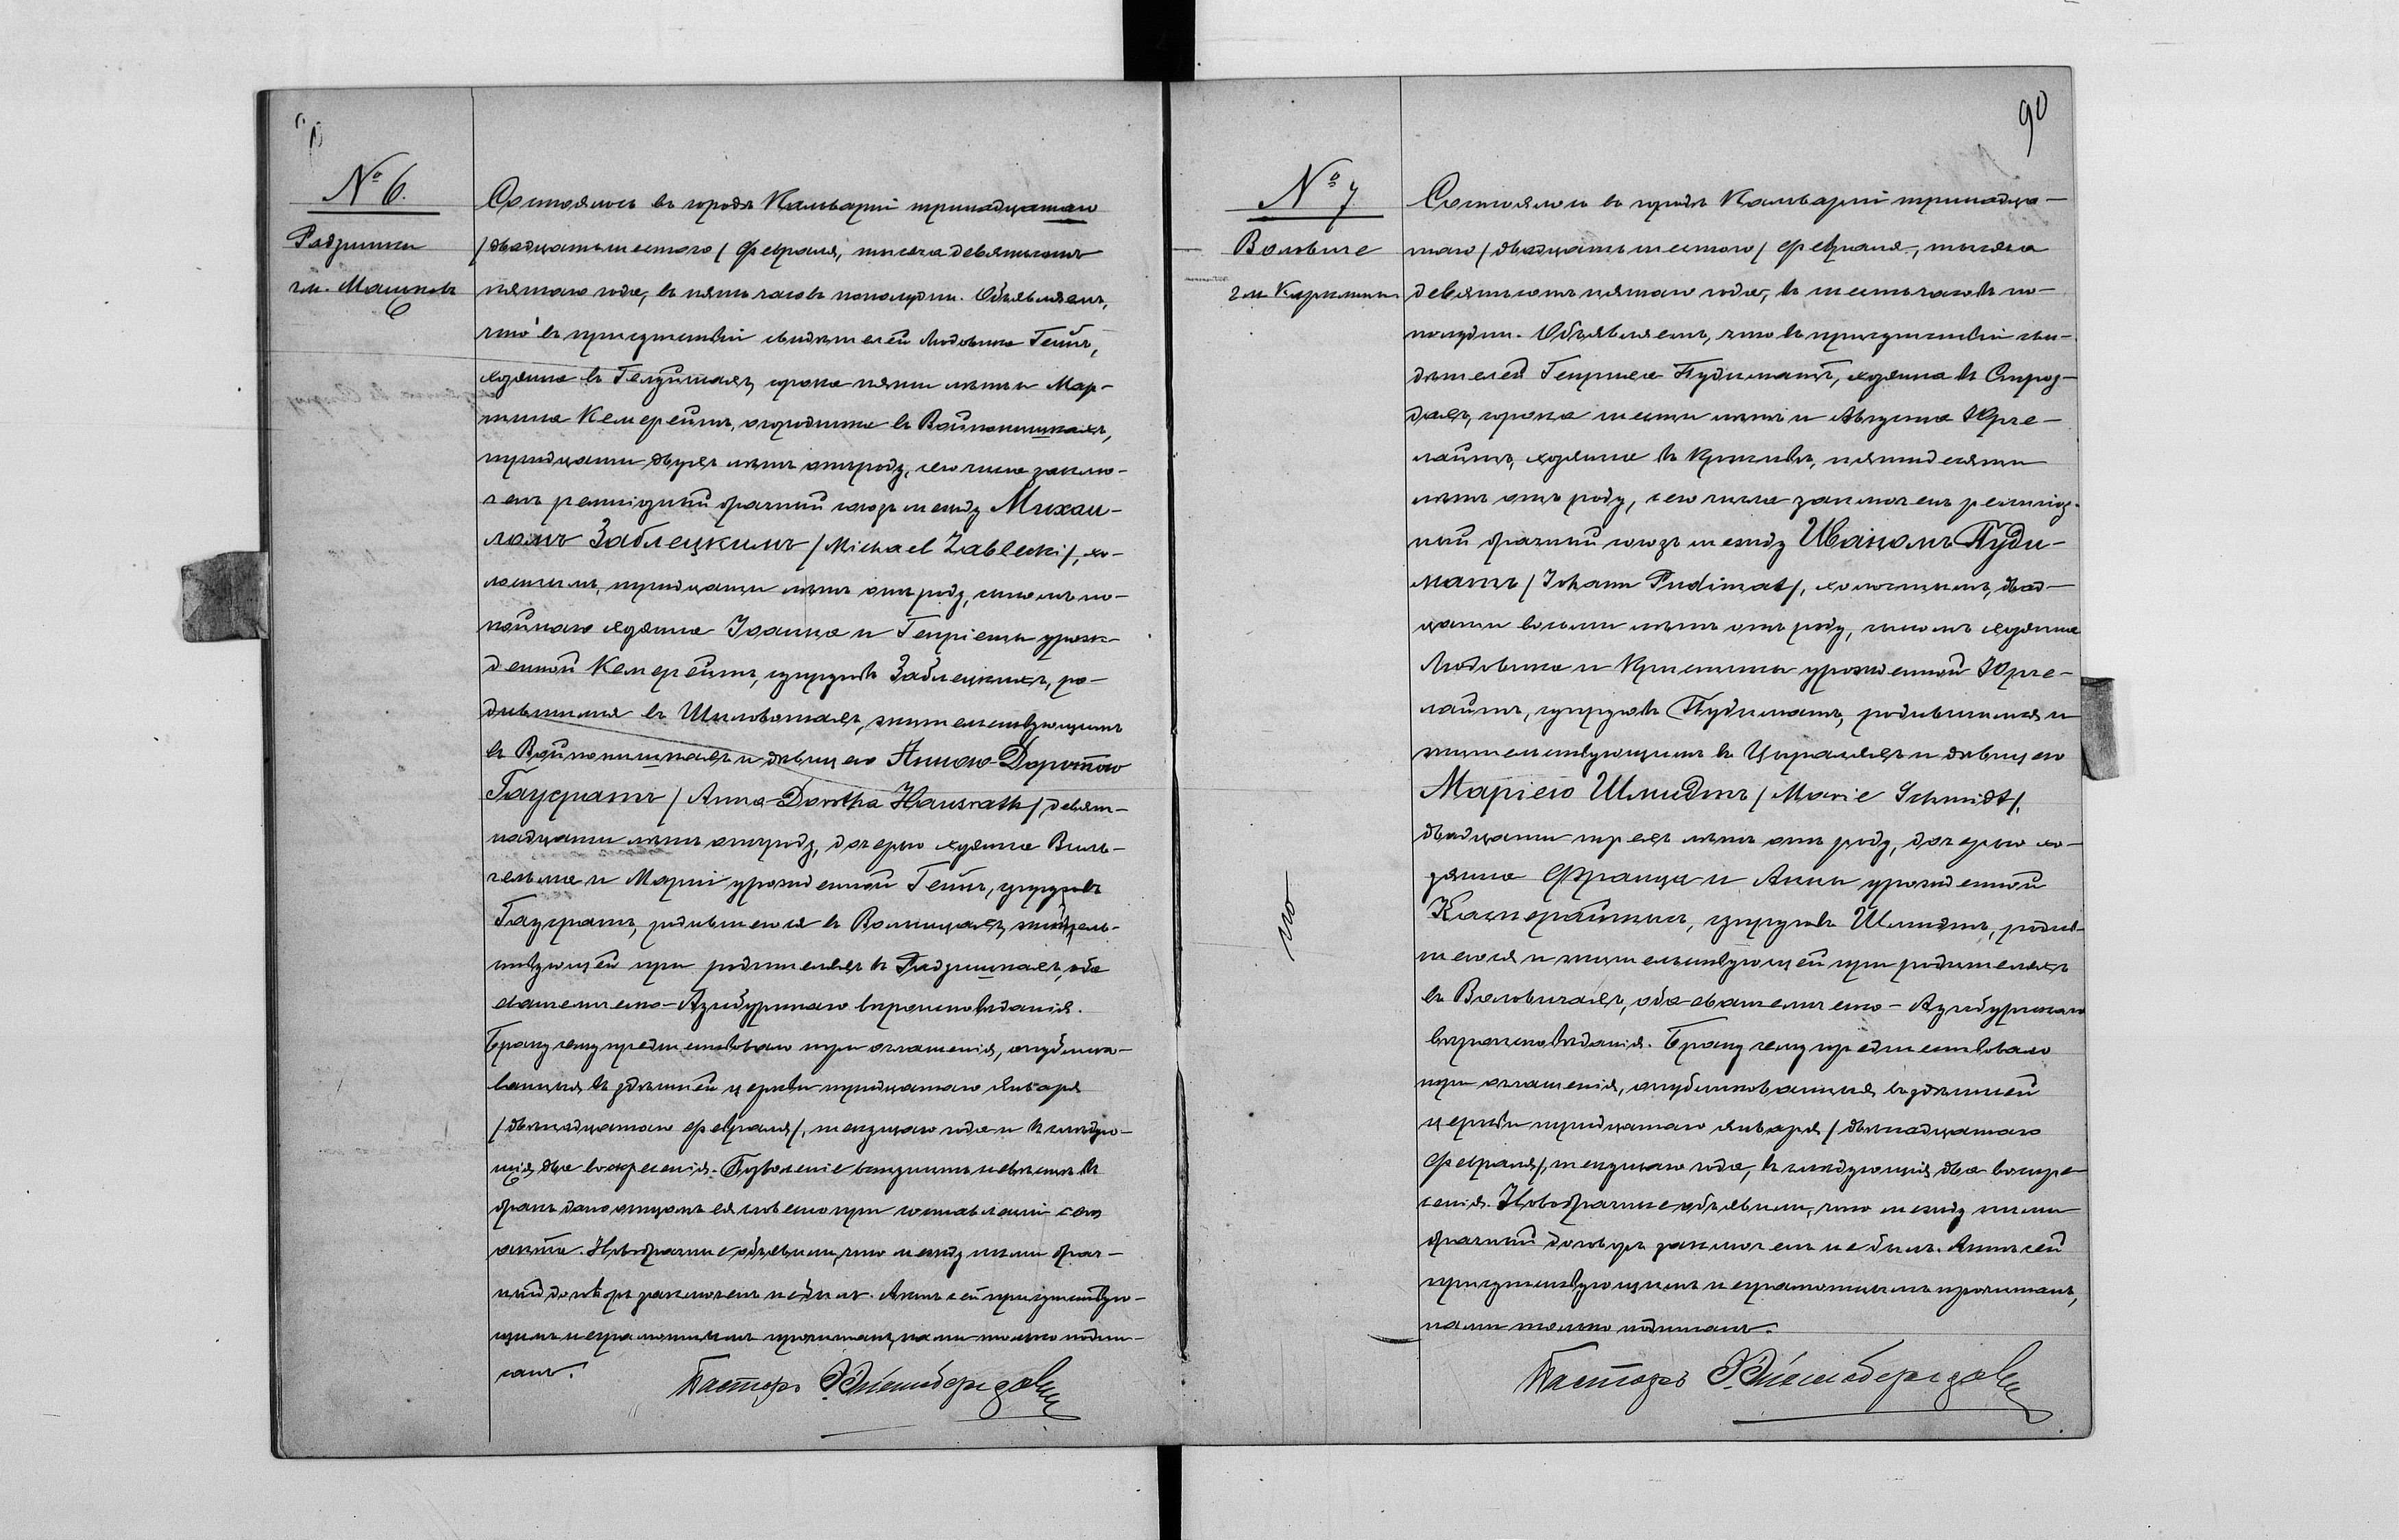 № 6.
Радзишки
гм.
Состоялось въ городѣ Кальваріи тринадцатаго
/двадцать шестого/ Февраля, тысяча девятьсотъ
пятаго года, въ пять часовъ пополудни. Объявляемъ,
что въ присутствіи свидѣтелей Людвика Гейнъ,
хозяина въ сорока пяти лѣтъ и Мар-
тина Кемерейтъ, огородника въ Войпонишкахъ,
тридцати двухъ лѣтъ отъ роду, сего числа заклю-
ченъ религіозный брачный союзъ между Михаи-
ломъ Заблецкимъ /Michael Zablecki/, хо-
лостымъ, тридцати лѣтъ отъ роду, сыномъ по-
койнаго хозяина Іоанна и Генріетты урож-
денной Кемерейтъ, супруговъ Заблецкихъ, ро-
дившимся въ жительствующимъ
въ Войпонишкахъ и дѣвицею Анною-Доротою
Гаусратъ /Anna-Dorotha Hausrath/ девят-
надцати лѣтъ отъ роду, дочерью хозяина Виль-
гельма и Маріи урожденной Гейнъ, супруговъ
Гаусратъ, родившеюся въ житель-
ствующей при родителяхъ въ Радзишкахъ, оба
евангелическо-Аугсбургскаго вѣроисповѣданія.
Браку сему предшествовало три оглашенія, опублико-
ванныя въ здѣшней церкви тридцатаго Января
/двѣнадцатаго Февраля/, текущаго года и въ слѣдую-
щія два воскресенія. Позволеніе вступающей въ
бракъ дано отцомъ ея словесно при составленіи сего
акта. Новобрачные объявили, что между ними брач-
ный договоръ заключенъ не былъ. Актъ сей присутствую-
щимъ неграмотнымъ прочитанъ, нами только подпи-
санъ.
Пасторъ
90
№ 7
Воловиче
гм.
Состоялось въ городѣ Кальваріи тринадца-
таго /двадцать шестого/ Февраля, тысяча
девятьсотъ пятаго года, въ шесть часовъ по-
полудни. Объявляемъ, что въ присутствіи сви-
дѣтелей Генриха Пудиматъ, хозяина въ
сорока шести лѣтъ и Августа Юрге-
лайтъ, хозяина въ пятидесяти
лѣтъ отъ роду, сего числа заключенъ религіоз-
ный брачный союзъ между Иваномъ Пуди-
матъ /Johann Pudimat/, холостымъ, двад-
цати восьми лѣтъ отъ роду, сыномъ хозяина
Людвика и Кристины урожденной Юрге-
лайтъ, супруговъ Пудиматъ, родившимся и
жительствующимъ въ и дѣвицею
Маріею Шмидтъ /Marie Schmidt/,
двадцати трехъ лѣтъ отъ роду, дочерью хо-
зяина Франца и Анны урожденной
супруговъ Шмидтъ, родив-
шеюся и жительствующей при родителяхъ
въ Воловичахъ, оба евангелическо-Аугсбургскаго
вѣроисповѣданія. Браку сему предшествовало
три оглашенія, опубликованныя въ здѣшней
церкви тридцатаго января /двѣнадцатаго
Февраля/, текущаго года, въ слѣдующія два воскре-
сенія. Новобрачные объявили, что между ними
брачный договоръ заключенъ не былъ. Актъ сей
присутствующимъ неграмотнымъ прочитанъ,
нами только подписанъ.
Пасторъ